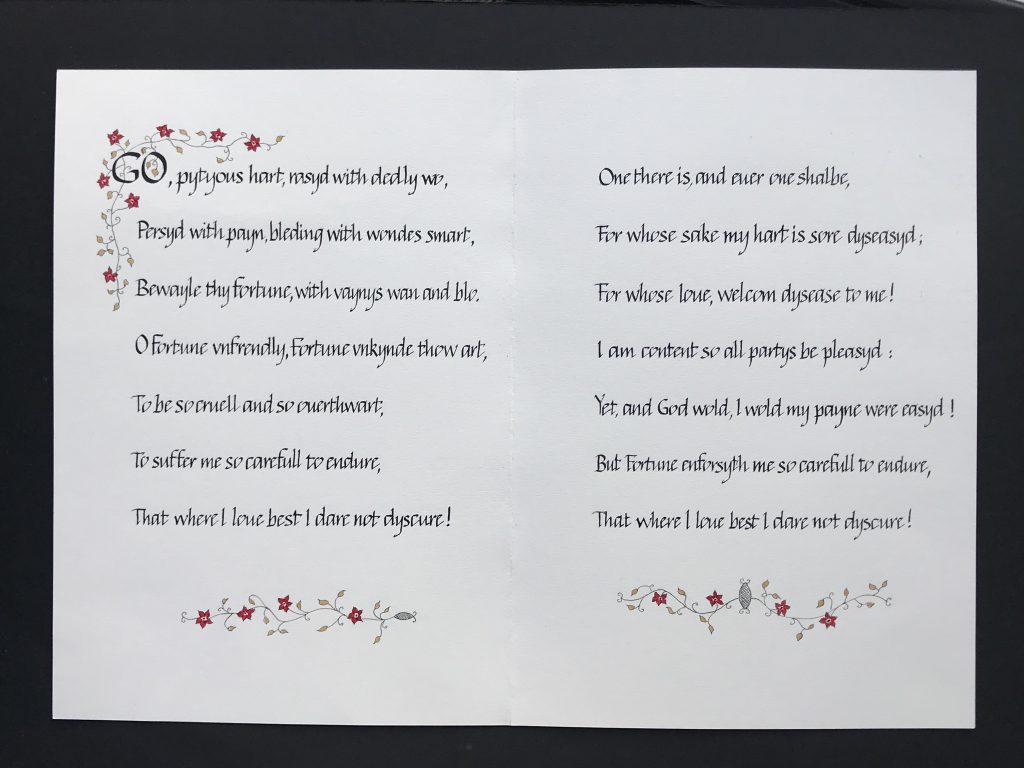 GO, pytyous hart, rasyd with dedly wo,
Persyd with payn, bleding with wondes smart,
Bewayle thy fortune, with vaynys wan and blo.
O Fortune vnfrendly, Fortune vnkynde thow art,
To be so cruell and so ouerthwart,
To suffer me so carefull to endure,
That where I loue best I dare not dyscure!
One there is, and euer one shalbe,
For whose sake my hart is sore dyseasyd;
For whose loue, welcom dysease to me!
I am content so all partys be pleasyd:
Yet, and God wold, I wold my payne were easyd!
But Fortune enforsyth me so carefull to endure,
That where I loue best I dare not dyscure!